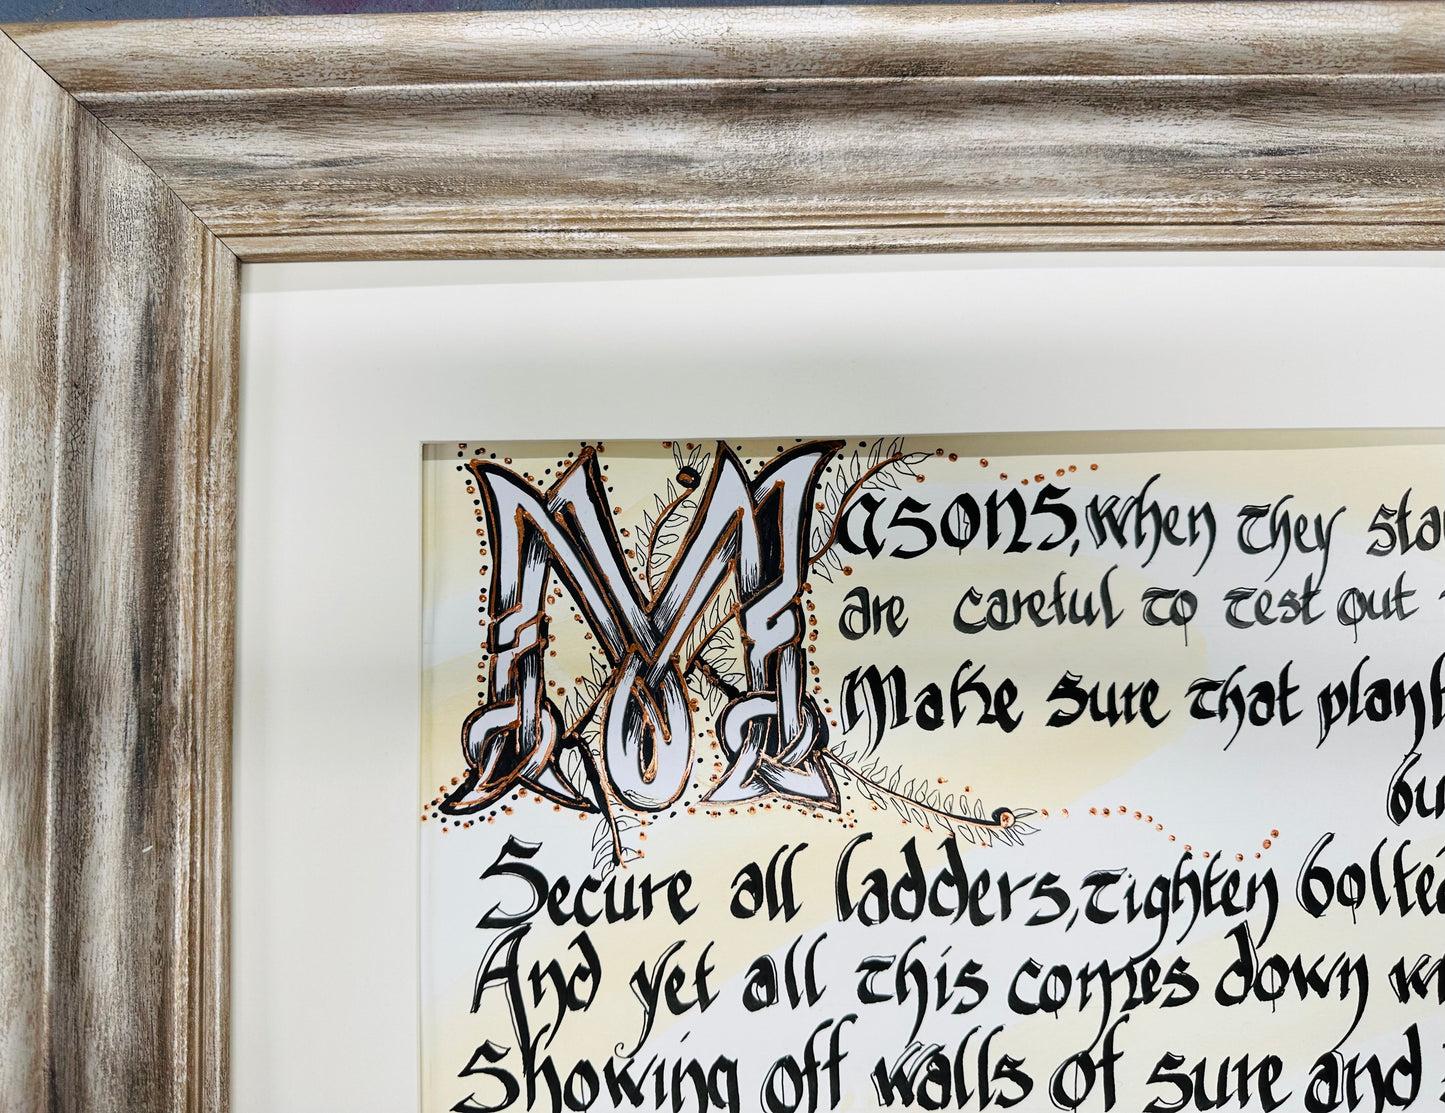 Masons, when they sta
are careful to test out
Make sure that plank
bu
Secure all ladders, tighten bolted
And yet all this comes down w
Showing off walls of sure and